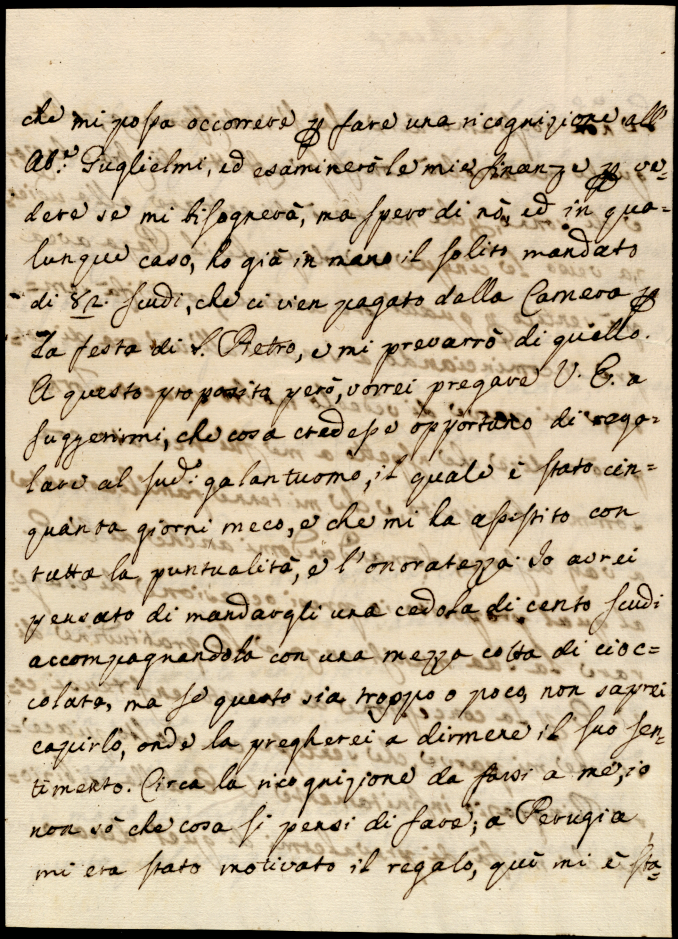 che mi possa occorrere ꝑ fare una ricognizione all'
Ab.e Guglielmi, ed esaminerò le mie finanze ꝑ ve=
dere se mi bisognerà, ma spero di nò, ed in qua=
lunque caso, ho già in mano il solito mandato
di 82. scudi, che ci vien pagato dalla Camera ꝑ
la festa di S. Pietro, e mi prevarrò di quello.
A questo proposito però, vorrei pregare V. E. a
suggerirmi, che cosa credesse opportuno di rega=
lare al sud.o galantuomo, il quale è stato cin=
quanta giorni meco, e che mi ha assistito con
tutta la puntualità, e l'onoratezza. Io avrei
pensato di mandargli una cedola di cento scudi
accompagnandola con una mezza cotta di cioc=
colata, ma se questo sia troppo o poco, non saprei
capirlo, onde la pregherei a dirmene il suo sen=
timento. Circa la ricognizione da farsi a me, io
non sò che cosa si pensi di fare; a Perugia
mi era stato motivato il regalo, quì mi è sta=